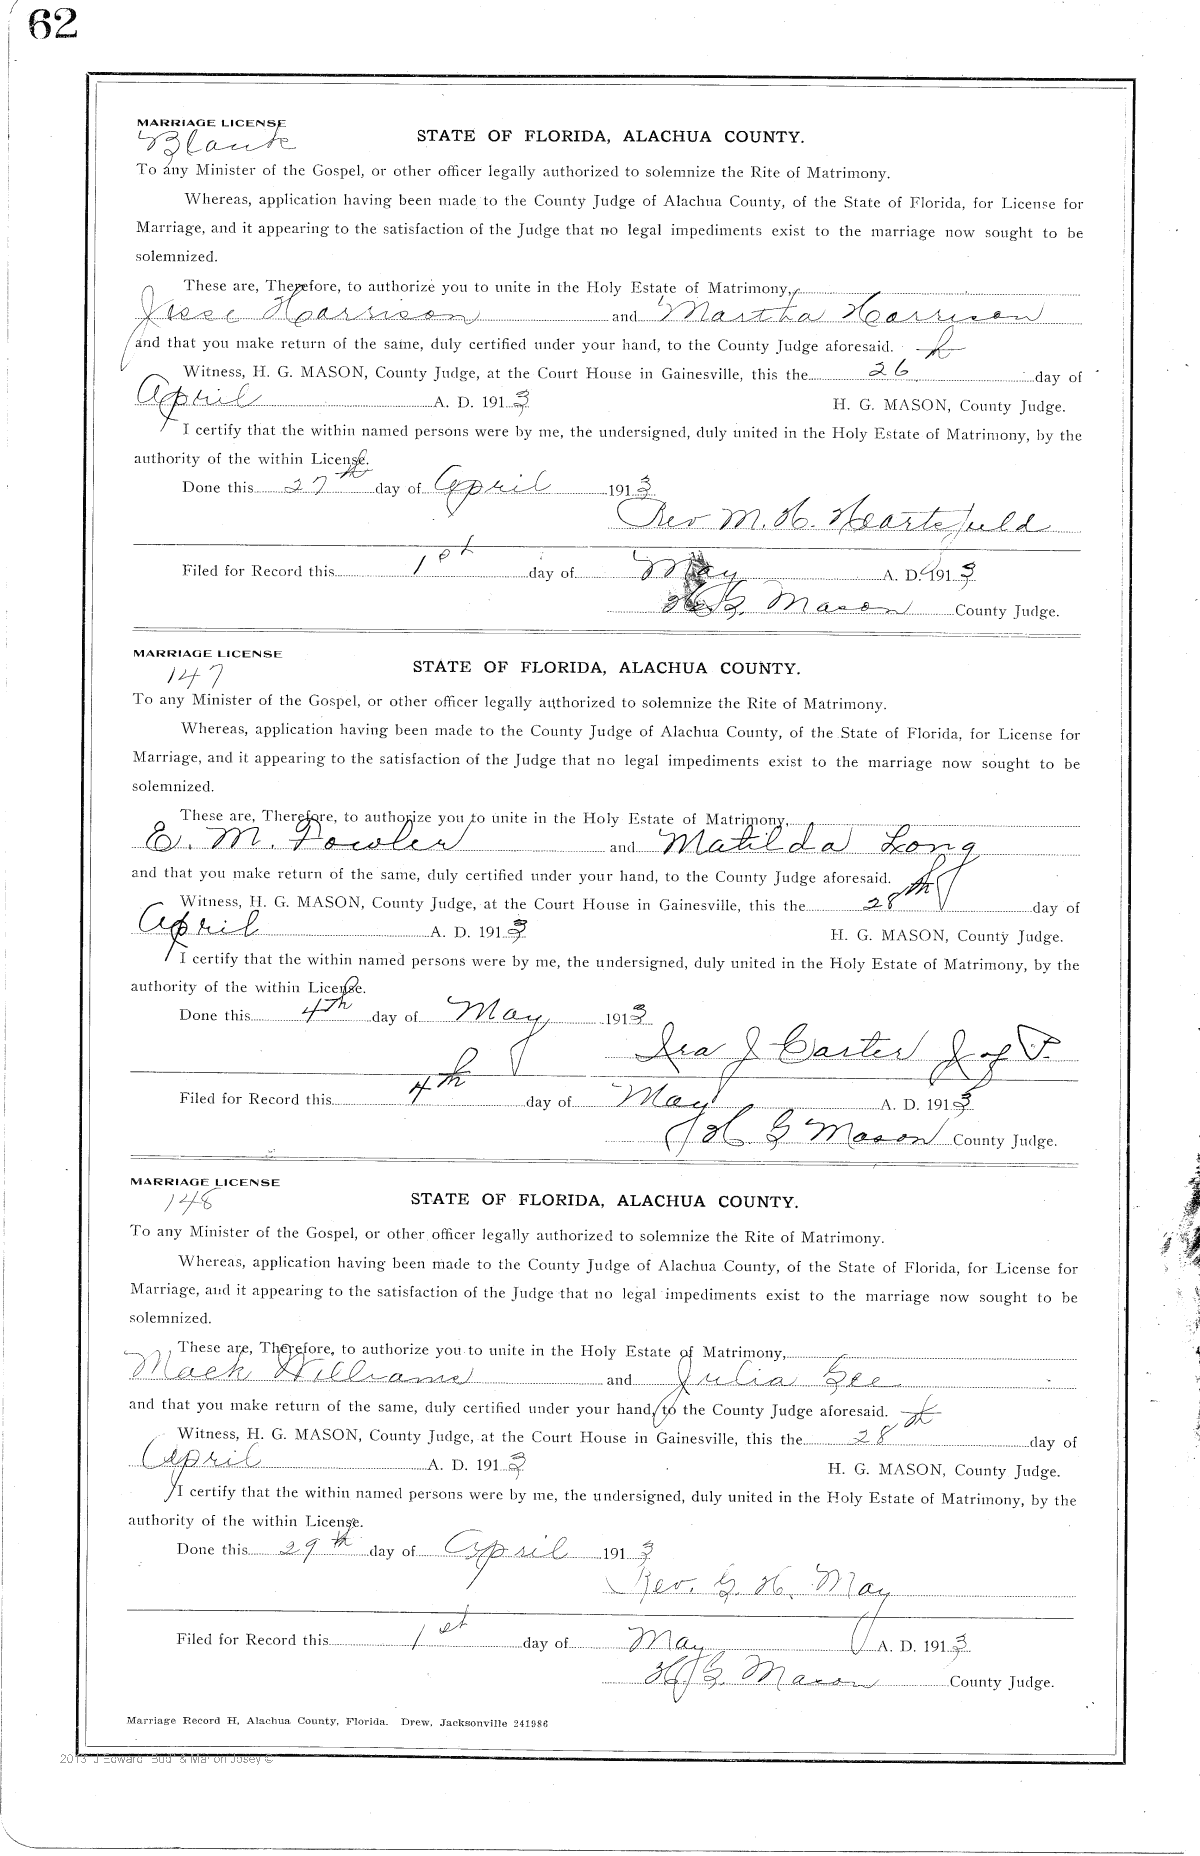 62
MARRIAGE LICENSE
Blank
STATE OF FLORIDA, ALACHUA COUNTY.
To any Minister of the Gospel, or other officer legally authorized to solemnize the Rite of Matrimony.
Whereas, application having been made to the County Judge of Alachua County, of the State of Florida, for License for
Marriage, and it appearing to the satisfaction of the Judge that no legal impediments exist to the marriage now sought to be
solemnized.
These are, Therefore, to authorize you to unite in the Holy Estate of Matrimony,
Jesse Harrison and Martha Harrison
and that you make return of the same, duly certified under your hand, to the County Judge aforesaid.
Witness, H. G. MASON, County Judge, at the Court House in Gainesville, this the 26th day of
April A. D. 1913 H. G. MASON, County Judge.
I certify that the within named persons were by me, the undersigned, duly united in the Holy Estate of Matrimony, by the
authority of the within License.
Done this 27th day of April 1913
Rev M. H. Heartsfield
Filed for Record this 1st day of May A. D. 1913
H. G. Mason County Judge.
MARRIAGE LICENSE
147
STATE OF FLORIDA, ALACHUA COUNTY.
To any Minister of the Gospel, or other officer legally authorized to solemnize the Rite of Matrimony.
Whereas, application having been made to the County Judge of Alachua County, of the State of Florida, for License for
Marriage, and it appearing to the satisfaction of the Judge that no legal impediments exist to the marriage now sought to be
solemnized.
These are, Therefore, to authorize you to unite in the Holy Estate of Matrimony,
E. M. Fowler and Matilda Long
and that you make return of the same, duly certified under your hand, to the County Judge aforesaid.
Witness, H. G. MASON, County Judge, at the Court House in Gainesville, this the 28th day of
April A. D. 1913 H. G. MASON, County Judge.
I certify that the within named persons were by me, the undersigned, duly united in the Holy Estate of Matrimony, by the
authority of the within License.
Done this 4th day of May 1913
Ira J Carter J of P.
Filed for Record this 4th day of May A. D. 1913
H G Mason County Judge.
MARRIAGE LICENSE
148
STATE OF FLORIDA, ALACHUA COUNTY.
To any Minister of the Gospel, or other officer legally authorized to solemnize the Rite of Matrimony.
Whereas, application having been made to the County Judge of Alachua County, of the State of Florida, for License for
Marriage, and it appearing to the satisfaction of the Judge that no legal impediments exist to the marriage now sought to be
solemnized.
These are, Therefore, to authorize you to unite in the Holy Estate of Matrimony,
Mack Williams and Julia Gee
and that you make return of the same, duly certified under your hand, to the County Judge aforesaid.
Witness, H. G. MASON, County Judge, at the Court House in Gainesville, this the 28th day of
April A. D. 1913 H. G. MASON, County Judge.
I certify that the within named persons were by me, the undersigned, duly united in the Holy Estate of Matrimony, by the
authority of the within License.
Done this 29th day of April 1913
Rev. G. H. May
Filed for Record this 1st day of May A. D. 1913
H. G. Mason County Judge.
Marriage Record H, Alachua County, Florida. Drew, Jacksonville 241986
2013 J Edward "Bud" & Marion Josey ©